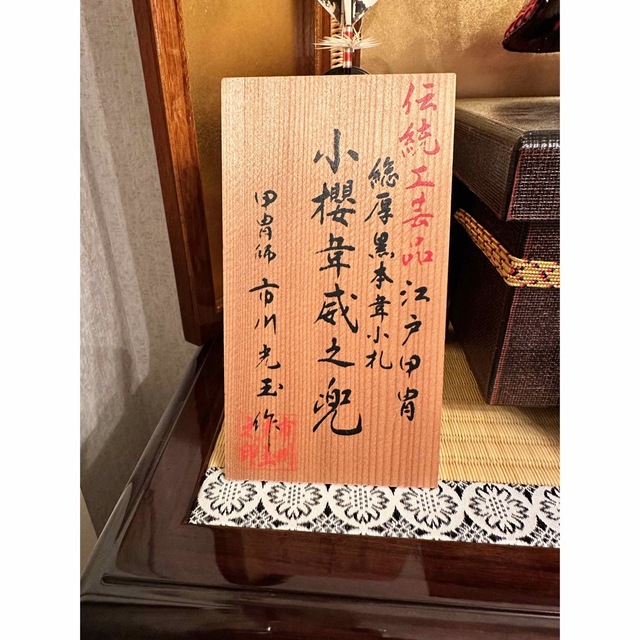 伝統工芸品江戸甲冑
総厚黒本韋小札
小櫻韋威之兜
甲冑師 市川光玉作